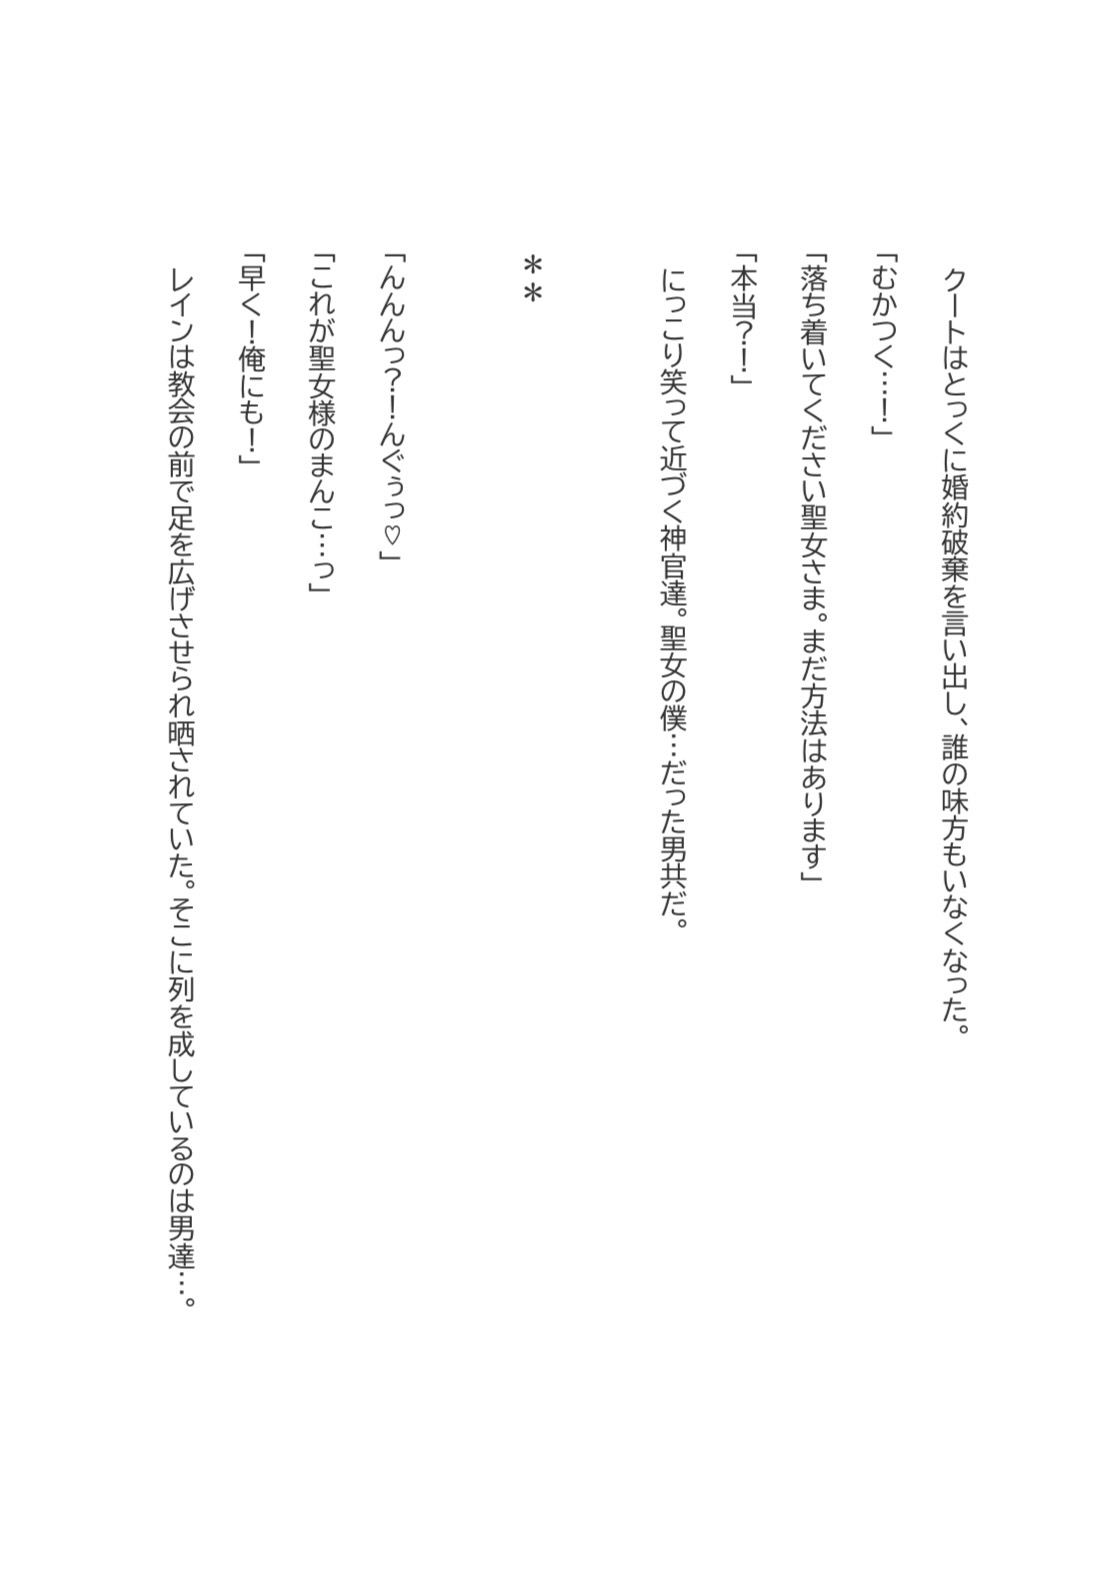 クートはとっくに婚約破棄を言い出し、誰の味方もいなくなった。
「むかつく…！」
「落ち着いてください聖女さま。まだ方法はあります」
「本当？！」
にっこり笑って近づく神官達。聖女の僕…だった男共だ。
＊＊
「んんんっ？！んぐぅっ♡」
「これが聖女様のまんこ…っ」
「早く！俺にも！」
レインは教会の前で足を広げさせられ晒されていた。そこに列を成しているのは男達…。